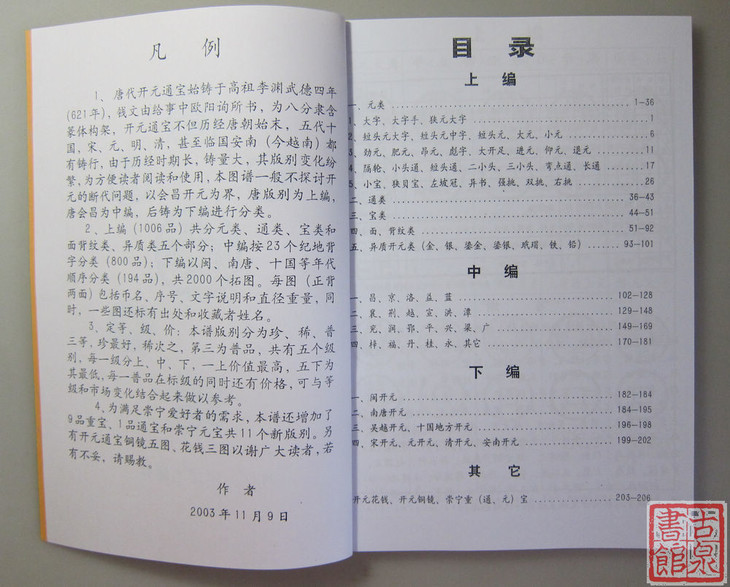 凡 例
1、唐代开元通宝始铸于高祖李渊武德四年
(621年)，钱文由给事中欧阳询所书，为八分隶含
篆体构架，开元通宝不但历经唐朝始末，五代十
国，宋、元、明、清，甚至临国安南（今越南）都
有铸行，由于历经时期长，铸量大，其版别变化纷
繁，为方便读者阅读和使用，本图谱一般不探讨开
元的断代问题，以会昌开元为界，唐版别为上编，
唐会昌为中编，后铸为下编进行分类。
2、上编（1006品）共分元类、通类、宝类和
面背纹类、异质类五个部分；中编按23个纪地背
字分类（800品）；下编以闽、南唐、十国等年代
顺序分类（194品），共2000个拓图。每图（正背
两面）包括币名、序号、文字说明和直径重量，同
时，一些图还标有出处和收藏者姓名。
3、定等、级、价：本谱版别分为珍、稀、普
三等，珍最好，稀次之，第三为普品，共有五个级
别，每一级分上、中、下，一上价值最高，五下为
其最低，每一普品在标级的同时还有价格，可与等
级和市场变化结合起来做以参考。
4、为满足崇宁爱好者的需求，本谱还增加了
9品重宝、1品通宝和崇宁元宝共11个新版别。另
有开元通宝铜镜五图、花钱三图以谢广大读者，若
有不妥，请赐教。
作 者
2003年11月9日
目 录
上 编
一、元类 1-36
1、大字、大字手、狭元大字 1
2、短头元大字、短头元中字、短头元、大元、小元 6
3、劲元、肥元、昂元、彪字、大开足、进元、仰元、退元 11
4、隔轮、小头通、短头通、二小头、三小头、弯点通、长通 17
5、小宝、狭贝宝、左坡冠、异书、强挑、双挑、右挑 26
二、通类 36-43
三、宝类 44-51
四、面、背纹类 51-92
五、异质开元类（金、银、鎏金、鎏银、玳瑁、铁、铅） 93-101
中 编
一、昌、京、洛、益、蓝 102-128
二、襄、荆、越、宣、洪、潭 129-148
三、兖、润、鄂、平、兴、梁、广 149-169
四、梓、福、丹、桂、永、其它 170-181
下 编
一、闽开元 182-184
二、南唐开元 184-195
三、吴越开元、十国地方开元 196-198
四、宋开元、元开元、清开元、安南开元 199-202
其 它
开元花钱、开元铜镜、崇宁重（通、元）宝 203-206
古泉
書館